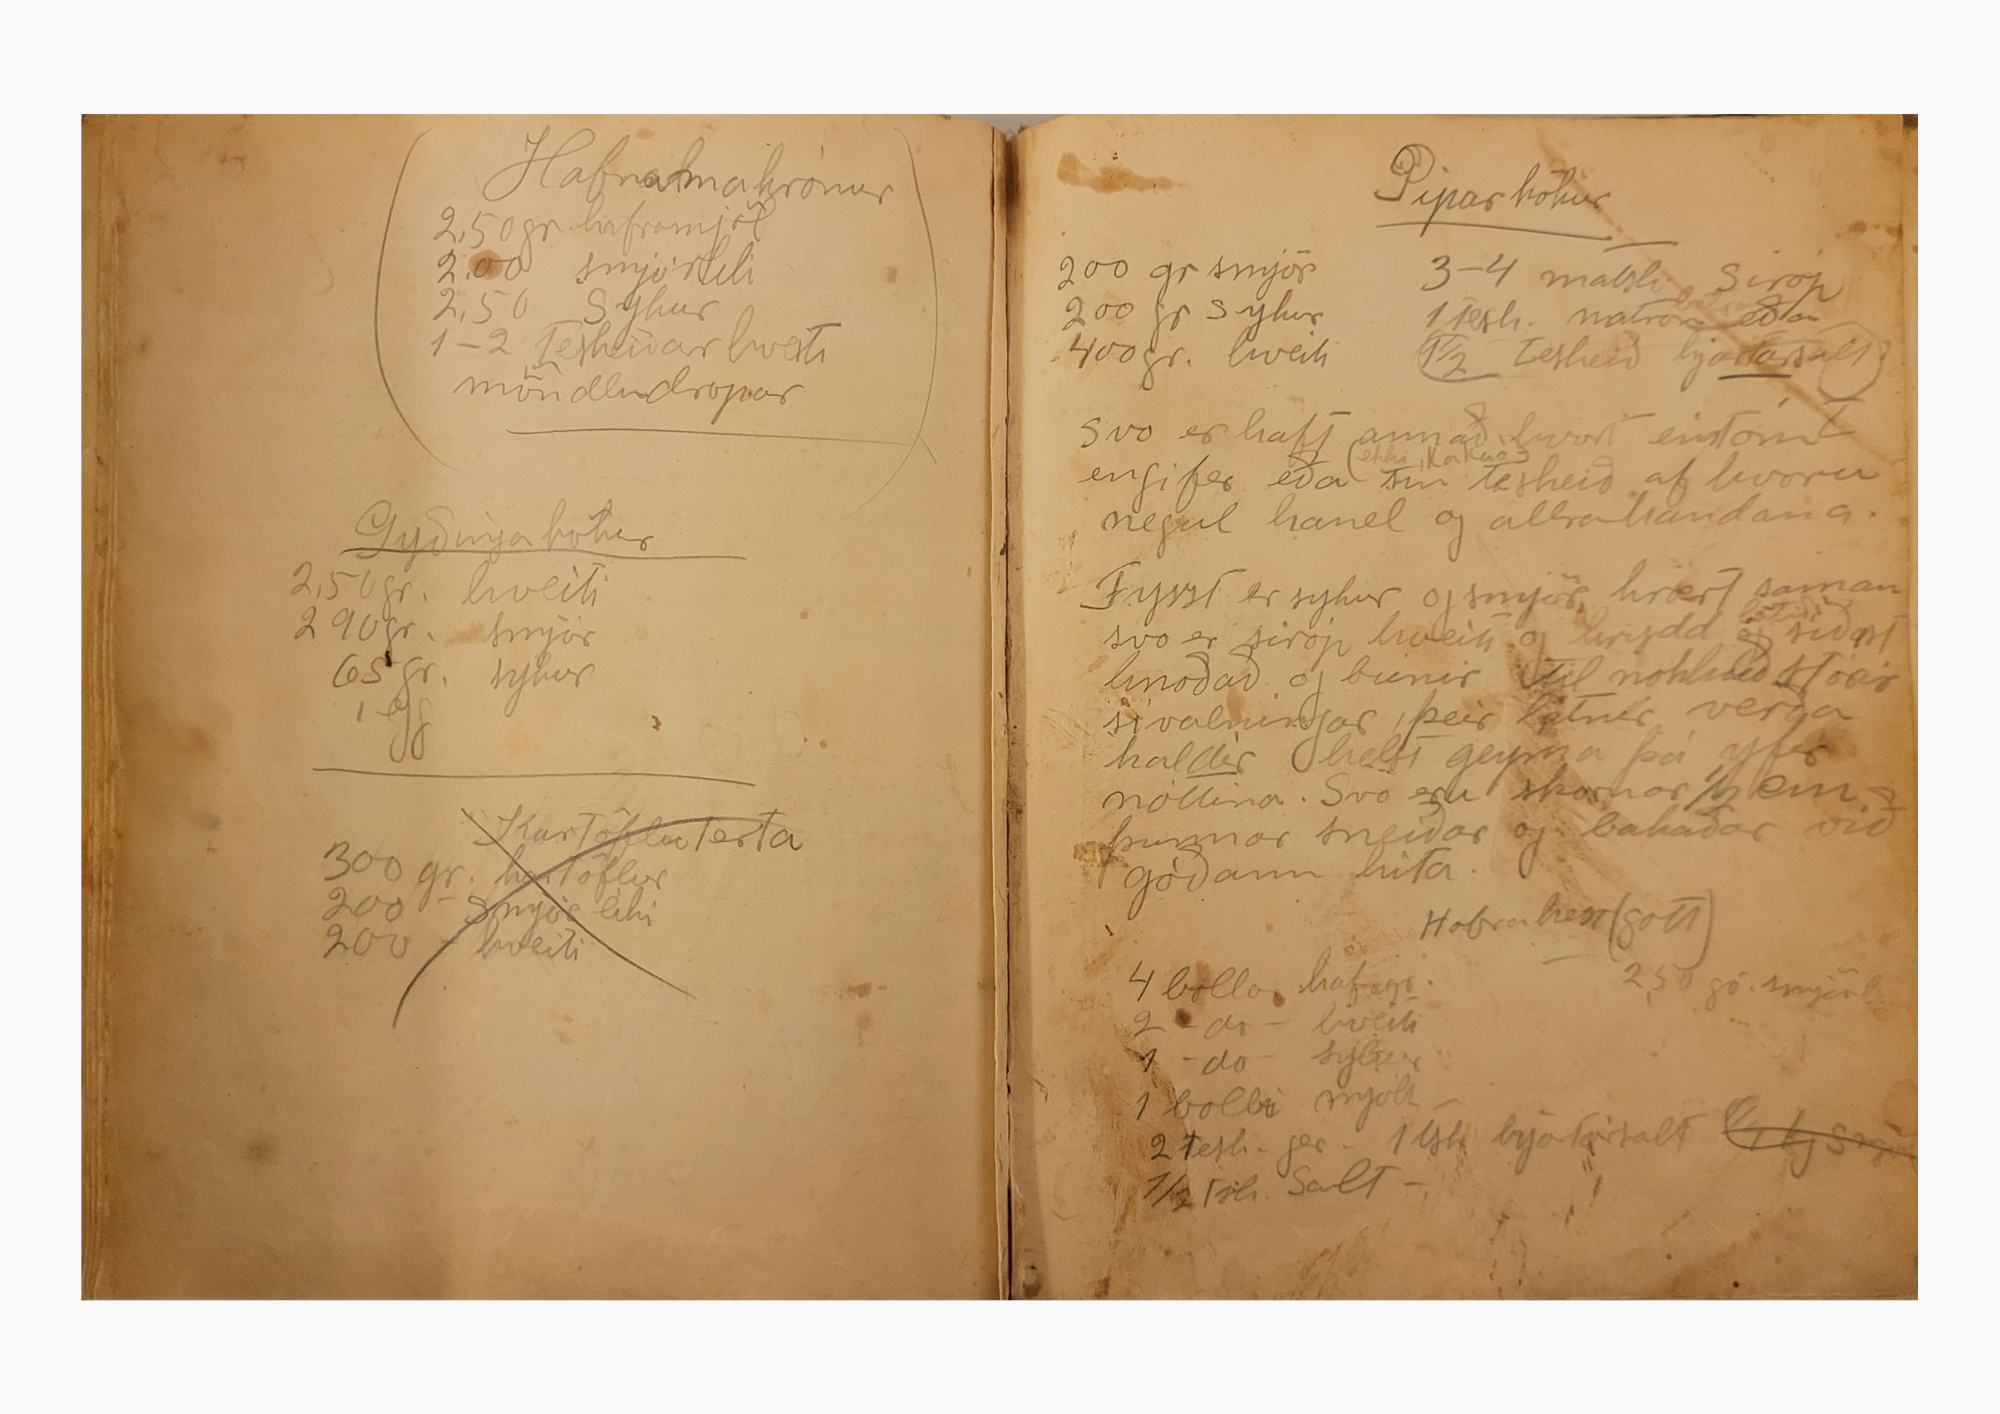 Haframakrónur
2,50 gr haframjöl
2.00 smjörlíki
2,50 Sykur
1-2 Teskeiðar hveiti
möndludropar
Gyðingakökur
2,50gr. hveiti
290gr. smjör
65gr. sykur
1 egg
Kartöfluterta
300 gr. kartöflur
200 - Smjör líki
200 - hveiti
Piparkökur
200 gr smjör 3-4 matsk. Siróp
200 gr sykur 1 tesk. natron eða
400gr. hveiti 1 1/2 teskeið hjartarsalt
Svo er haft annað hvort eintómt
(ekki, Kakuo)
engifer eða sín teskeið af hvoru
negul kanel og allrahandana.
Fyrst er sykur og smjör hrært saman
svo er siróp hveiti og krydd og síðast
hnoðað og búnir til nokkuð stórir
sívalningar, þeir látner verða
kalder helst geyma þá yfir
nóttina. Svo eru skornar 1/2 cm
þunnar sneiðar og bakaðar við
góðann hita.
Hafrakex (gott)
4 bollar hafragr. 2,50 gr. smjörl
2 -do- hveiti
1 -do- sykur
1 bolli mjólk -
2 tesk. ger - 1 tsk hjartarsalt
1/2 tsk. Salt -